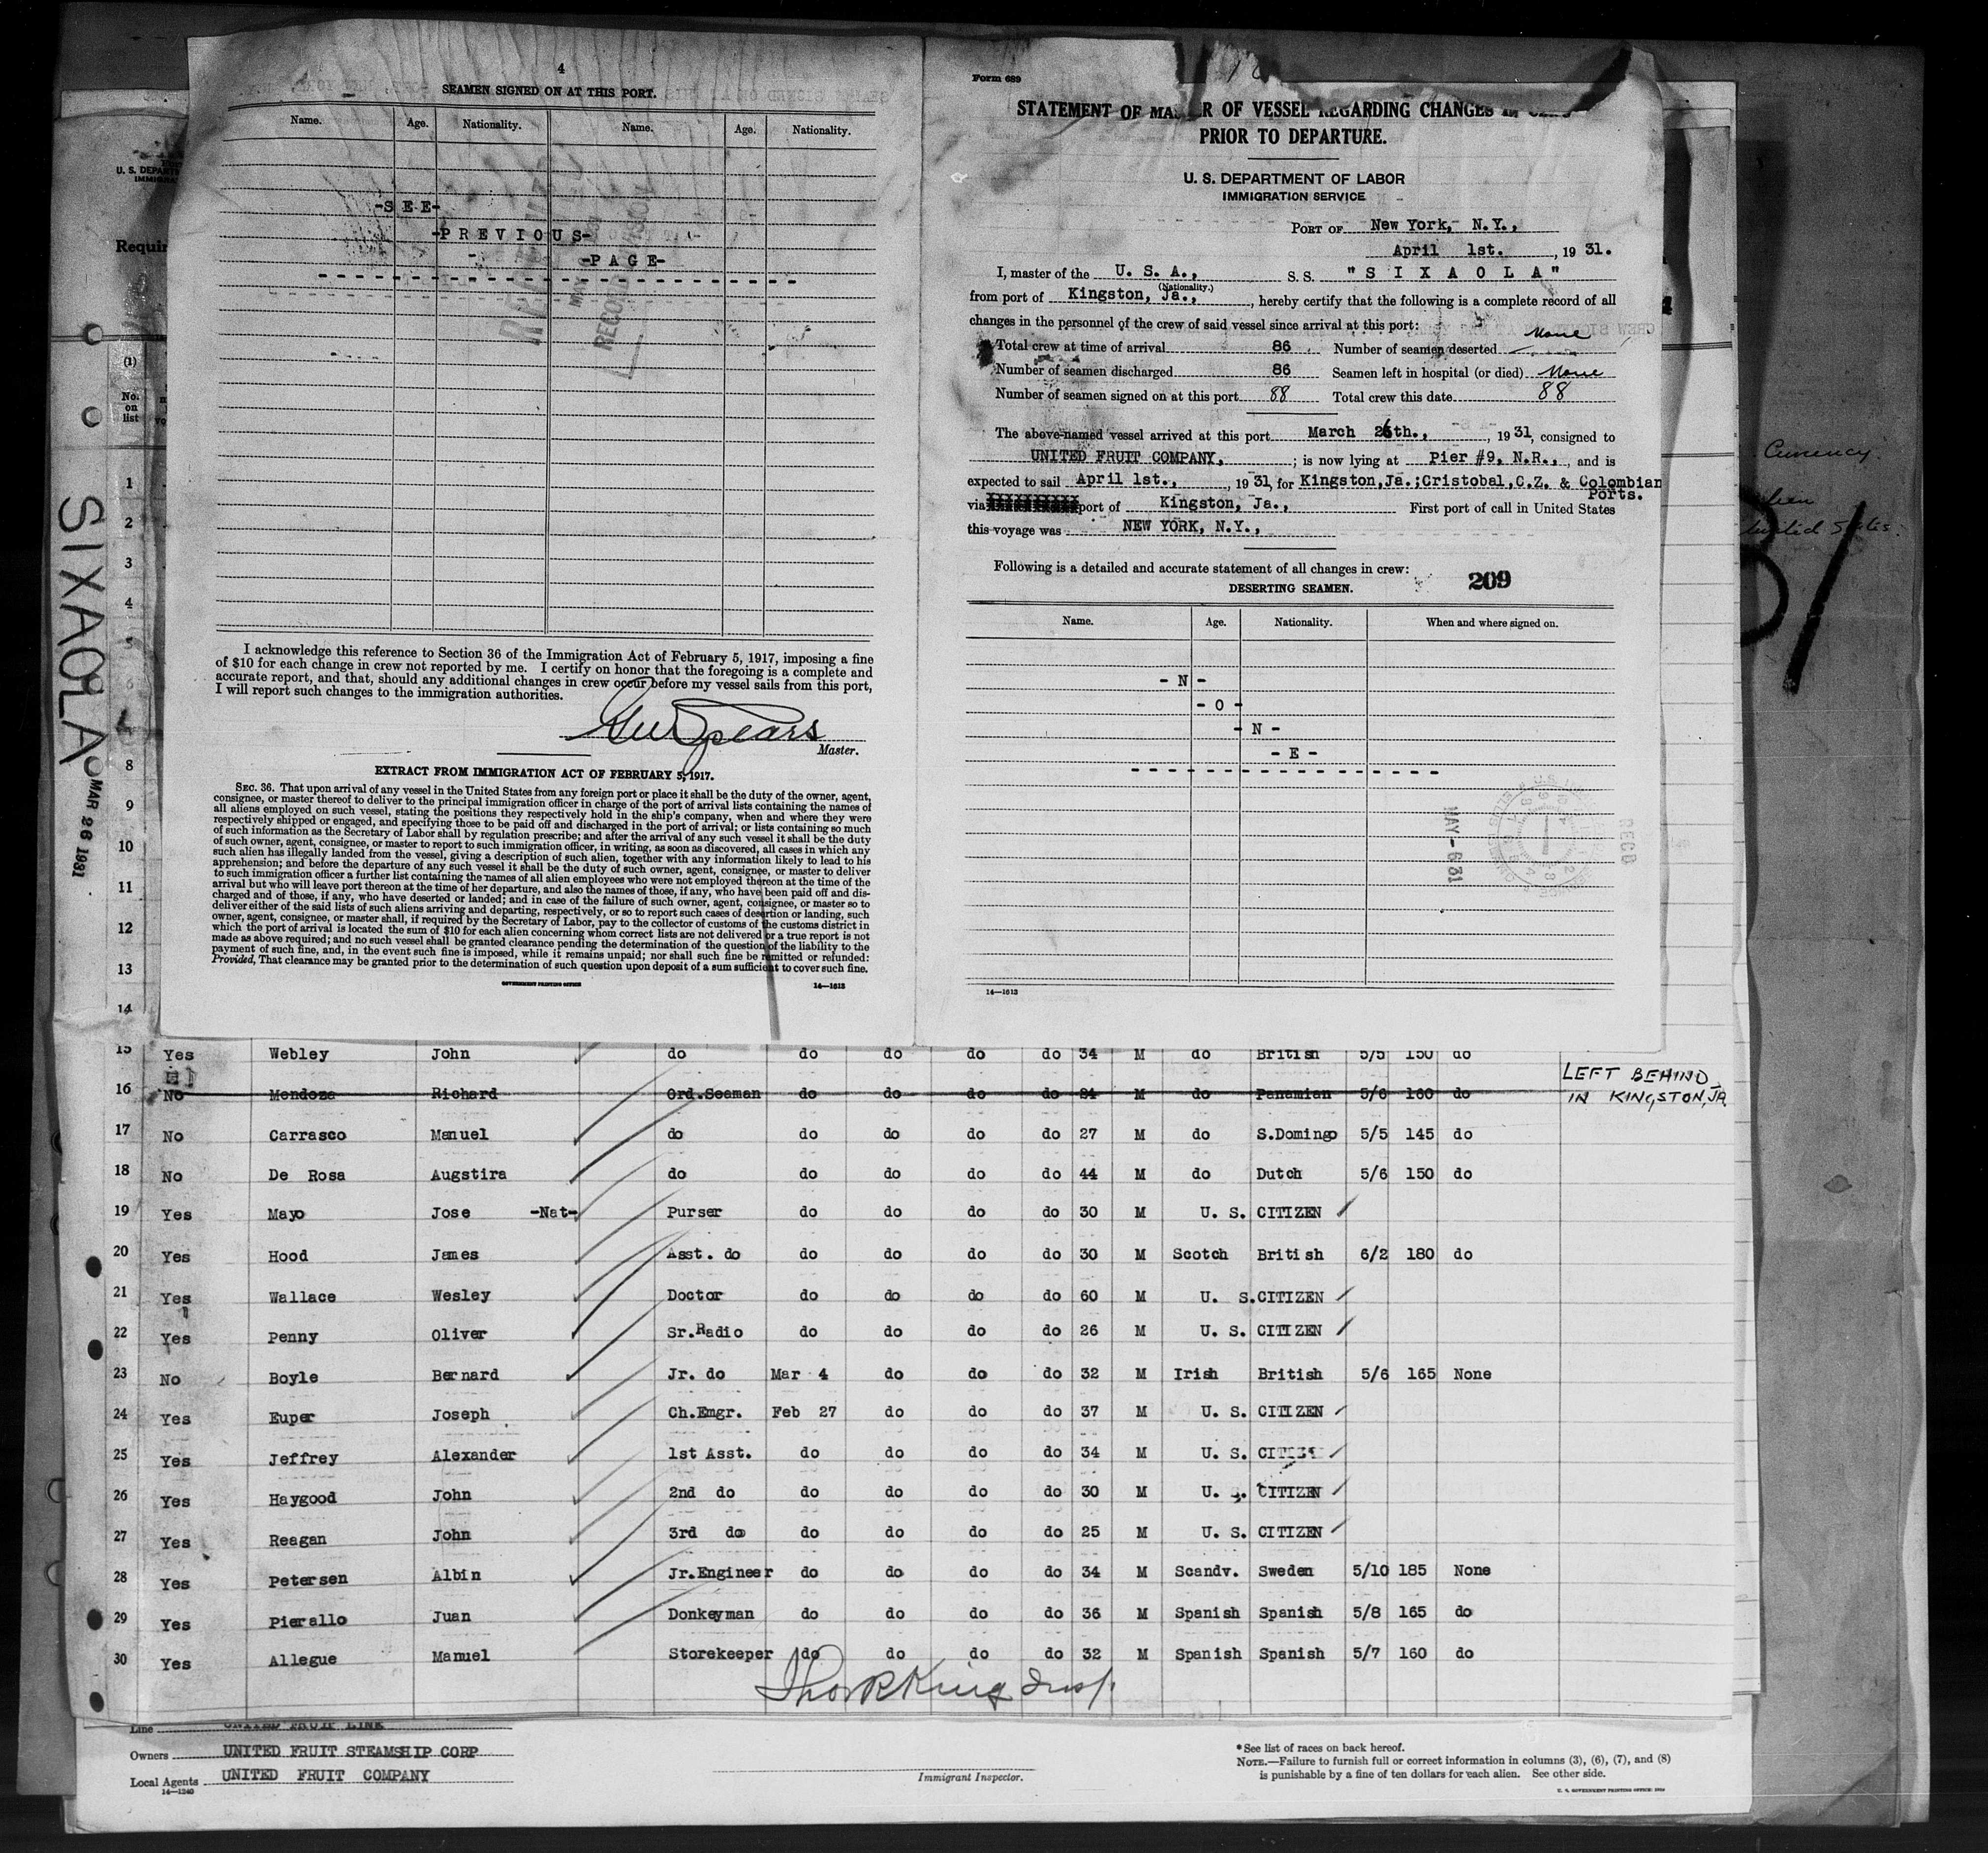 4
SEAMEN SIGNED ON AT THIS PORT.
Name. Age. Nationality. Name. Age. Nationality.
-S E E-
-P R E V I O U S-
-P A G E-
I acknowledge this reference to Section 36 of the Immigration Act of February 5, 1917, imposing a fine
of $10 for each change in crew not reported by me. I certify on honor that the foregoing is a complete and
accurate report, and that, should any additional changes in crew occur before my vessel sails from this port,
I will report such changes to the immigration authorities.
Master.
EXTRACT FROM IMMIGRATION ACT OF FEBRUARY 5, 1917.
SEC. 36. That upon arrival of any vessel in the United States from any foreign port or place it shall be the duty of the owner, agent,
consignee, or master thereof to deliver to the principal immigration officer in charge of the port of arrival lists containing the names of
all aliens employed on such vessel, stating the positions they respectively hold in the ship's company, when and where they were
respectively shipped or engaged, and specifying those to be paid off and discharged in the port of arrival; or lists containing so much
of such information as the Secretary of Labor shall by regulation prescribe; and after the arrival of any such vessel it shall be the duty
of such owner, agent, consignee, or master to report to such immigration officer, in writing, as soon as discovered, all cases in which any
such alien has illegally landed from the vessel, giving a description of such alien, together with any information likely to lead to his
apprehension; and before the departure of any such vessel it shall be the duty of such owner, agent, consignee, or master to deliver
to such immigration officer a further list containing the names of all alien employees who were not employed thereon at the time of the
arrival but who will leave port thereon at the time of her departure, and also the names of those, if any, who have been paid off and dis-
charged and of those, if any, who have deserted or landed; and in case of the failure of such owner, agent, consignee, or master so to
deliver either of the said lists of such aliens arriving and departing, respectively, or so to report such cases of desertion or landing, such
owner, agent, consignee, or master shall, if required by the Secretary of Labor, pay to the collector of customs of the customs district in
which the port of arrival is located the sum of $10 for each alien concerning whom correct lists are not delivered or a true report is not
made as above required; and no such vessel shall be granted clearance pending the determination of the question of the liability to the
payment of such fine, and, in the event such fine is imposed, while it remains unpaid; nor shall such fine be remitted or refunded:
Provided, That clearance may be granted prior to the determination of such question upon deposit of a sum sufficient to cover such fine.
GOVERNMENT PRINTING OFFICE 14—1613
Form 689
STATEMENT OF MA R OF VESSEL REGARDING CHANGES IN
PRIOR TO DEPARTURE.
U. S. DEPARTMENT OF LABOR
IMMIGRATION SERVICE
PORT OF New York, N.Y.,
April 1st. , 19 31.
I, master of the U. S. A., S. S. "S I X A O L A"
(Nationality.)
from port of Kingston, Ja., , hereby certify that the following is a complete record of all
changes in the personnel of the crew of said vessel since arrival at this port:
Total crew at time of arrival 86 Number of seamen deserted None
Number of seamen discharged 86 Seamen left in hospital (or died) None
Number of seamen signed on at this port 88 Total crew this date 88
The above-named vessel arrived at this port March 26th., , 19 31, consigned to
UNITED FRUIT COMPANY, ; is now lying at Pier #9, N.R., , and is
expected to sail April 1st., , 19 31, for Kingston,Ja.;Cristobal,C.Z. & Colombian
Ports.
via port of Kingston, Ja., First port of call in United States
this voyage was NEW YORK, N.Y.,
Following is a detailed and accurate statement of all changes in crew:
209
DESERTING SEAMEN.
Name. Age. Nationality. When and where signed on.
- N -
- O -
- N -
- E -
MAY-631
RECD
14—1613
U. S. DEPAR
Requir
(1)
No. on list
SIXAOLA
MAR 26 1931
Currency
1
2
3
4
5
6
8
9
10
11
12
13
14
15 Yes Webley John do do do do do 34 M do British 5/5 150 do
16 No Mendoza Richard Ord.Seaman do do do do 24 M do Panamian 5/6 160 do LEFT BEHIND
IN KINGSTON, JA
17 No Carrasco Manuel do do do do do 27 M do S.Domingo 5/5 145 do
18 No De Rosa Augstira do do do do do 44 M do Dutch 5/6 150 do
19 Yes Mayo Jose -Nat- Purser do do do do 30 M U. S. CITIZEN
20 Yes Hood James Asst. do do do do do 30 M Scotch British 6/2 180 do
21 Yes Wallace Wesley Doctor do do do do 60 M U. S. CITIZEN
22 Yes Penny Oliver Sr.Radio do do do do 26 M U. S. CITIZEN
23 No Boyle Bernard Jr. do Mar 4 do do do 32 M Irish British 5/6 165 None
24 Yes Euper Joseph Ch.Engr. Feb 27 do do do 37 M U. S. CITIZEN
25 Yes Jeffrey Alexander 1st Asst. do do do do 34 M U. S. CITIZEN
26 Yes Haygood John 2nd do do do do do 30 M U. S. CITIZEN
27 Yes Reagan John 3rd do do do do do 25 M U. S. CITIZEN
28 Yes Petersen Albin Jr.Engineer do do do do 34 M Scandv. Sweden 5/10 185 None
29 Yes Pierallo Juan Donkeyman do do do do 36 M Spanish Spanish 5/8 165 do
30 Yes Allegue Manuel Storekeeper do do do do 32 M Spanish Spanish 5/7 160 do
Line UNITED FRUIT LINE
Owners UNITED FRUIT STEAMSHIP CORP
Local Agents UNITED FRUIT COMPANY
14—1240
Immigrant Inspector.
*See list of races on back hereof.
NOTE.—Failure to furnish full or correct information in columns (3), (6), (7), and (8)
is punishable by a fine of ten dollars for each alien. See other side.